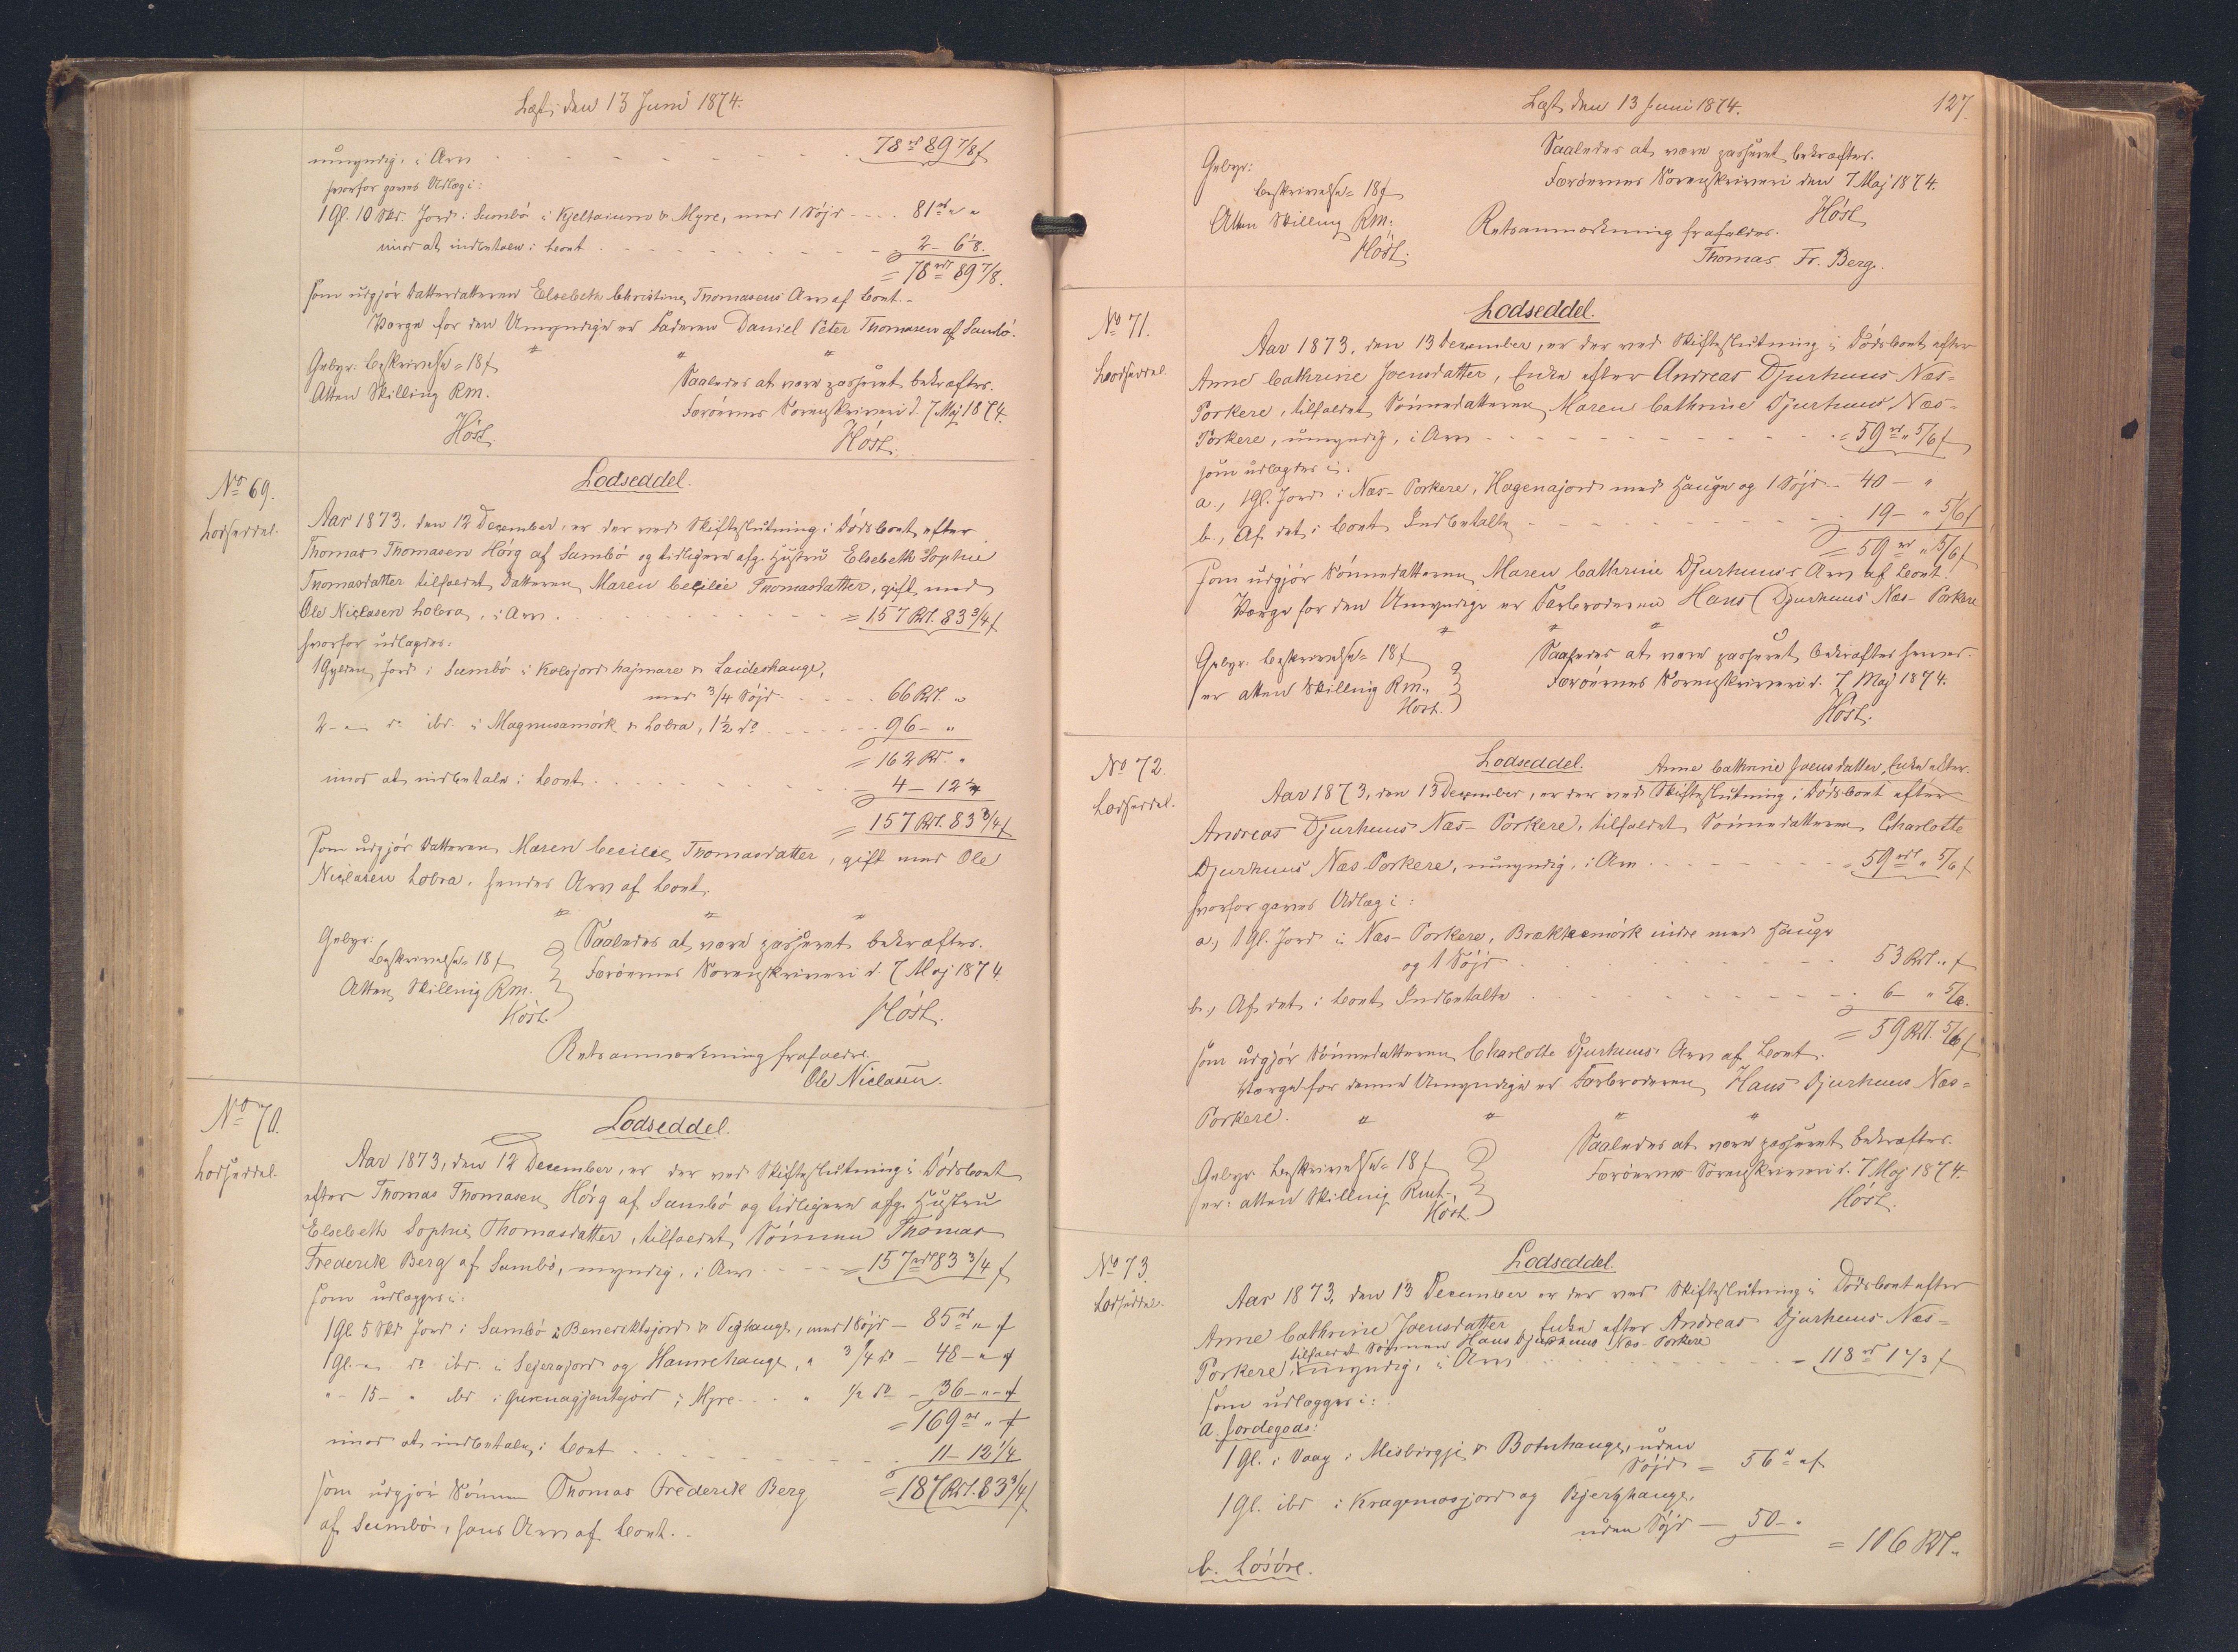 Læst den 13 Juni 1874.
umyndig, i Arv 78 rd 89 7/8 f
hvorfor gaves Udlæg i:
1 Gl. 10 Skd. Jord i Sumbö i Kjeltaiumo & Myre, med 1 Söjd 81 rd " "
imod at indbetale i Boet 2 - 6 1/8.
= 78 rd 89 7/8.
som udgjör Datterdatteren Elsebeth Christine Thomasens Arv af Boet.-
Værge for den Umyndige er Faderen Daniel Peter Thomasen af Sumbö.
Gebyr: Beskrivelse = 18 f
Atten Skilling Rm.
Höst.
Saaledes at være passeret bekræftes.
Færöernes Sorenskriveri d. 7 Maj 1874.
Höst.
No 69.
Lodseddel.
Lodseddel.
Aar 1873, den 12 December, er der ved Skifteslutning i Dödsboet efter
Thomas Thomasen Hörg af Sumbö og tidligere afg. Hustru Elsebeth Sophie
Thomasdatter tilfaldet Datteren Maren Cecilie Thomasdatter, gift med
Ole Niclasen Lobra, i Arv = 157 Rd. 83 3/4 f
hvorfor udlagdes:
1 Gylden Jord i Sumbö i Kolsjord hajmare & Laideshauge,
med 3/4 Söjd 66 Rd. "
2 - " do ibd. i Magnusamörk & Lobra, 1 1/2 do 96 - "
= 162 Rd. "
imod at indbetale i Boet 4 - 12 1/4
= 157 Rd. 83 3/4 f
som udgjör Datteren Maren Cecilie Thomasdatter, gift med Ole
Niclasen Lobra, hendes Arv af Boet.
Gebyr:
Beskrivelse = 18 f
Atten Skilling Rm.
Höst.
Saaledes at være passeret bekræftes.
Færöernes Sorenskriveri d. 7 Maj 1874.
Höst.
Retsanmærkning frafaldes.
Ole Niclasen.
No 70.
Lodseddel.
Lodseddel.
Aar 1873, den 12 December, er der ved Skifteslutning i Dödsboet
efter Thomas Thomasen Hörg af Sumbö og tidligere afg. Hustru
Elsebeth Sophie Thomasdatter, tilfaldet Sönnen Thomas
Frederik Berg af Sumbö, myndig, i Arv = 157 rd 83 3/4 f
som udlægges i:
1 Gl 5 Skd Jord i Sumbö i Benediktsjord & Vejhauge, med 1 Söjd - 85 rd " f
1 Gl. - " do ibd. i Sejerajord og Hamrehauge, " 3/4 do - 48 - " f
" - 15 - " ibd i Qurnagjartejord i Myre " 1/2 do - 36 - " - f
= 169 rd " f
imod at indbetale i Boet 11 - 12 1/4
som udgjör Sönnen Thomas Frederik Berg = 187 Rd. 83 3/4 f
af Sumbö, hans Arv af Boet.-
Læst den 13 Juni 1874.
127.
Gebyr:
Beskrivelse = 18 f
Atten Skilling Rm.
Höst.
Saaledes at være passeret bekræftes.
Færöernes Sorenskriveri den 7 Maj 1874.
Höst
Retsanmærkning frafaldes.
Thomas Fr. Berg.
No 71.
Lodseddel.
Lodseddel.
Aar 1873, den 13 December, er der ved Skifteslutning i Dödsboet efter
Anne Cathrine Joensdatter, Enke efter Andreas Djurhuus Næs=
Porkere, tilfaldet Sönnedatteren Maren Cathrine Djurhuus Næs-
Porkere, umyndig, i Arv = 59 rd " 5/6 f
som udlagdes i:
a., 1 Gl. Jord i Næs-Porkere, Hagenajord med Hauge og 1 Söjd - 40 - "
b., Af det i Boet Indbetalte 19 - " 5/6 f
= 59 rd " 5/6 f
som udgjör Sönnedatteren Maren Cathrine Djurhuus's Arv af Boet.
Værge for den Umyndige er Farbroderen Hans Djurhuus Næs-Porkere
Gebyr: Beskrivelse = 18 f
er atten Skilling Rm.
Höst.
Saaledes at være passeret bekræftes herved.
Færöernes Sorenskriveri d. 7 Maj 1874.
Höst.
No 72.
Lodseddel.
Lodseddel.
Anne Cathrine Joensdatter, Enke efter
Aar 1873, den 13 December, er der ved Skifteslutning i Dödsboet efter
Andreas Djurhuus Næs-Porkere, tilfaldet Sönnedatteren Charlotte
Djurhuus Næs-Porkere, umyndig, i Arv = 59 rd " 5/6 f
hvorfor gaves Udlæg i:
a., 1 Gl. Jord i Næs-Porkere, Brækkemörk indre med Hauge
og 1 Söjd 53 Rd. " f
b., Af det i Boet Indbetalte 6 - " 5/6.
= 59 Rd. 5/6 f
som udgjör Sönnedatteren Charlotte Djurhuus' Arv af Boet.
Værge for denne Umyndige er Farbroderen Hans Djurhuus Næs=
Porkere.
Gebyr: Beskrivelse = 18 f
er: atten Skilling Rmt.
Höst
Saaledes at være passeret bekræftes.
Færöernes Sorenskriveri d. 7 Maj 1874.
Höst.
No 73.
Lodseddel.
Lodseddel.
Aar 1873, den 13 December er der ved Skifteslutning i Dödsboet efter
Anne Cathrine Joensdatter, Enke efter Andreas Djurhuus Næs=
tilfaldet Sönnen Hans Djurhuus Næs-Porkere
Porkere, myndig, i Arv = 118 rd 1 2/3 f
som udlægges i:
a. Jordegods:
1 Gl. i Vaag i Misbirgje & Botnhauge, uden
Söjd = 56 rd " f
1 Gl. ibd i Kragemosjord og Bjerghauge,
uden Söjd - 50 - "
= 106 Rd. "
b. Lösöre.